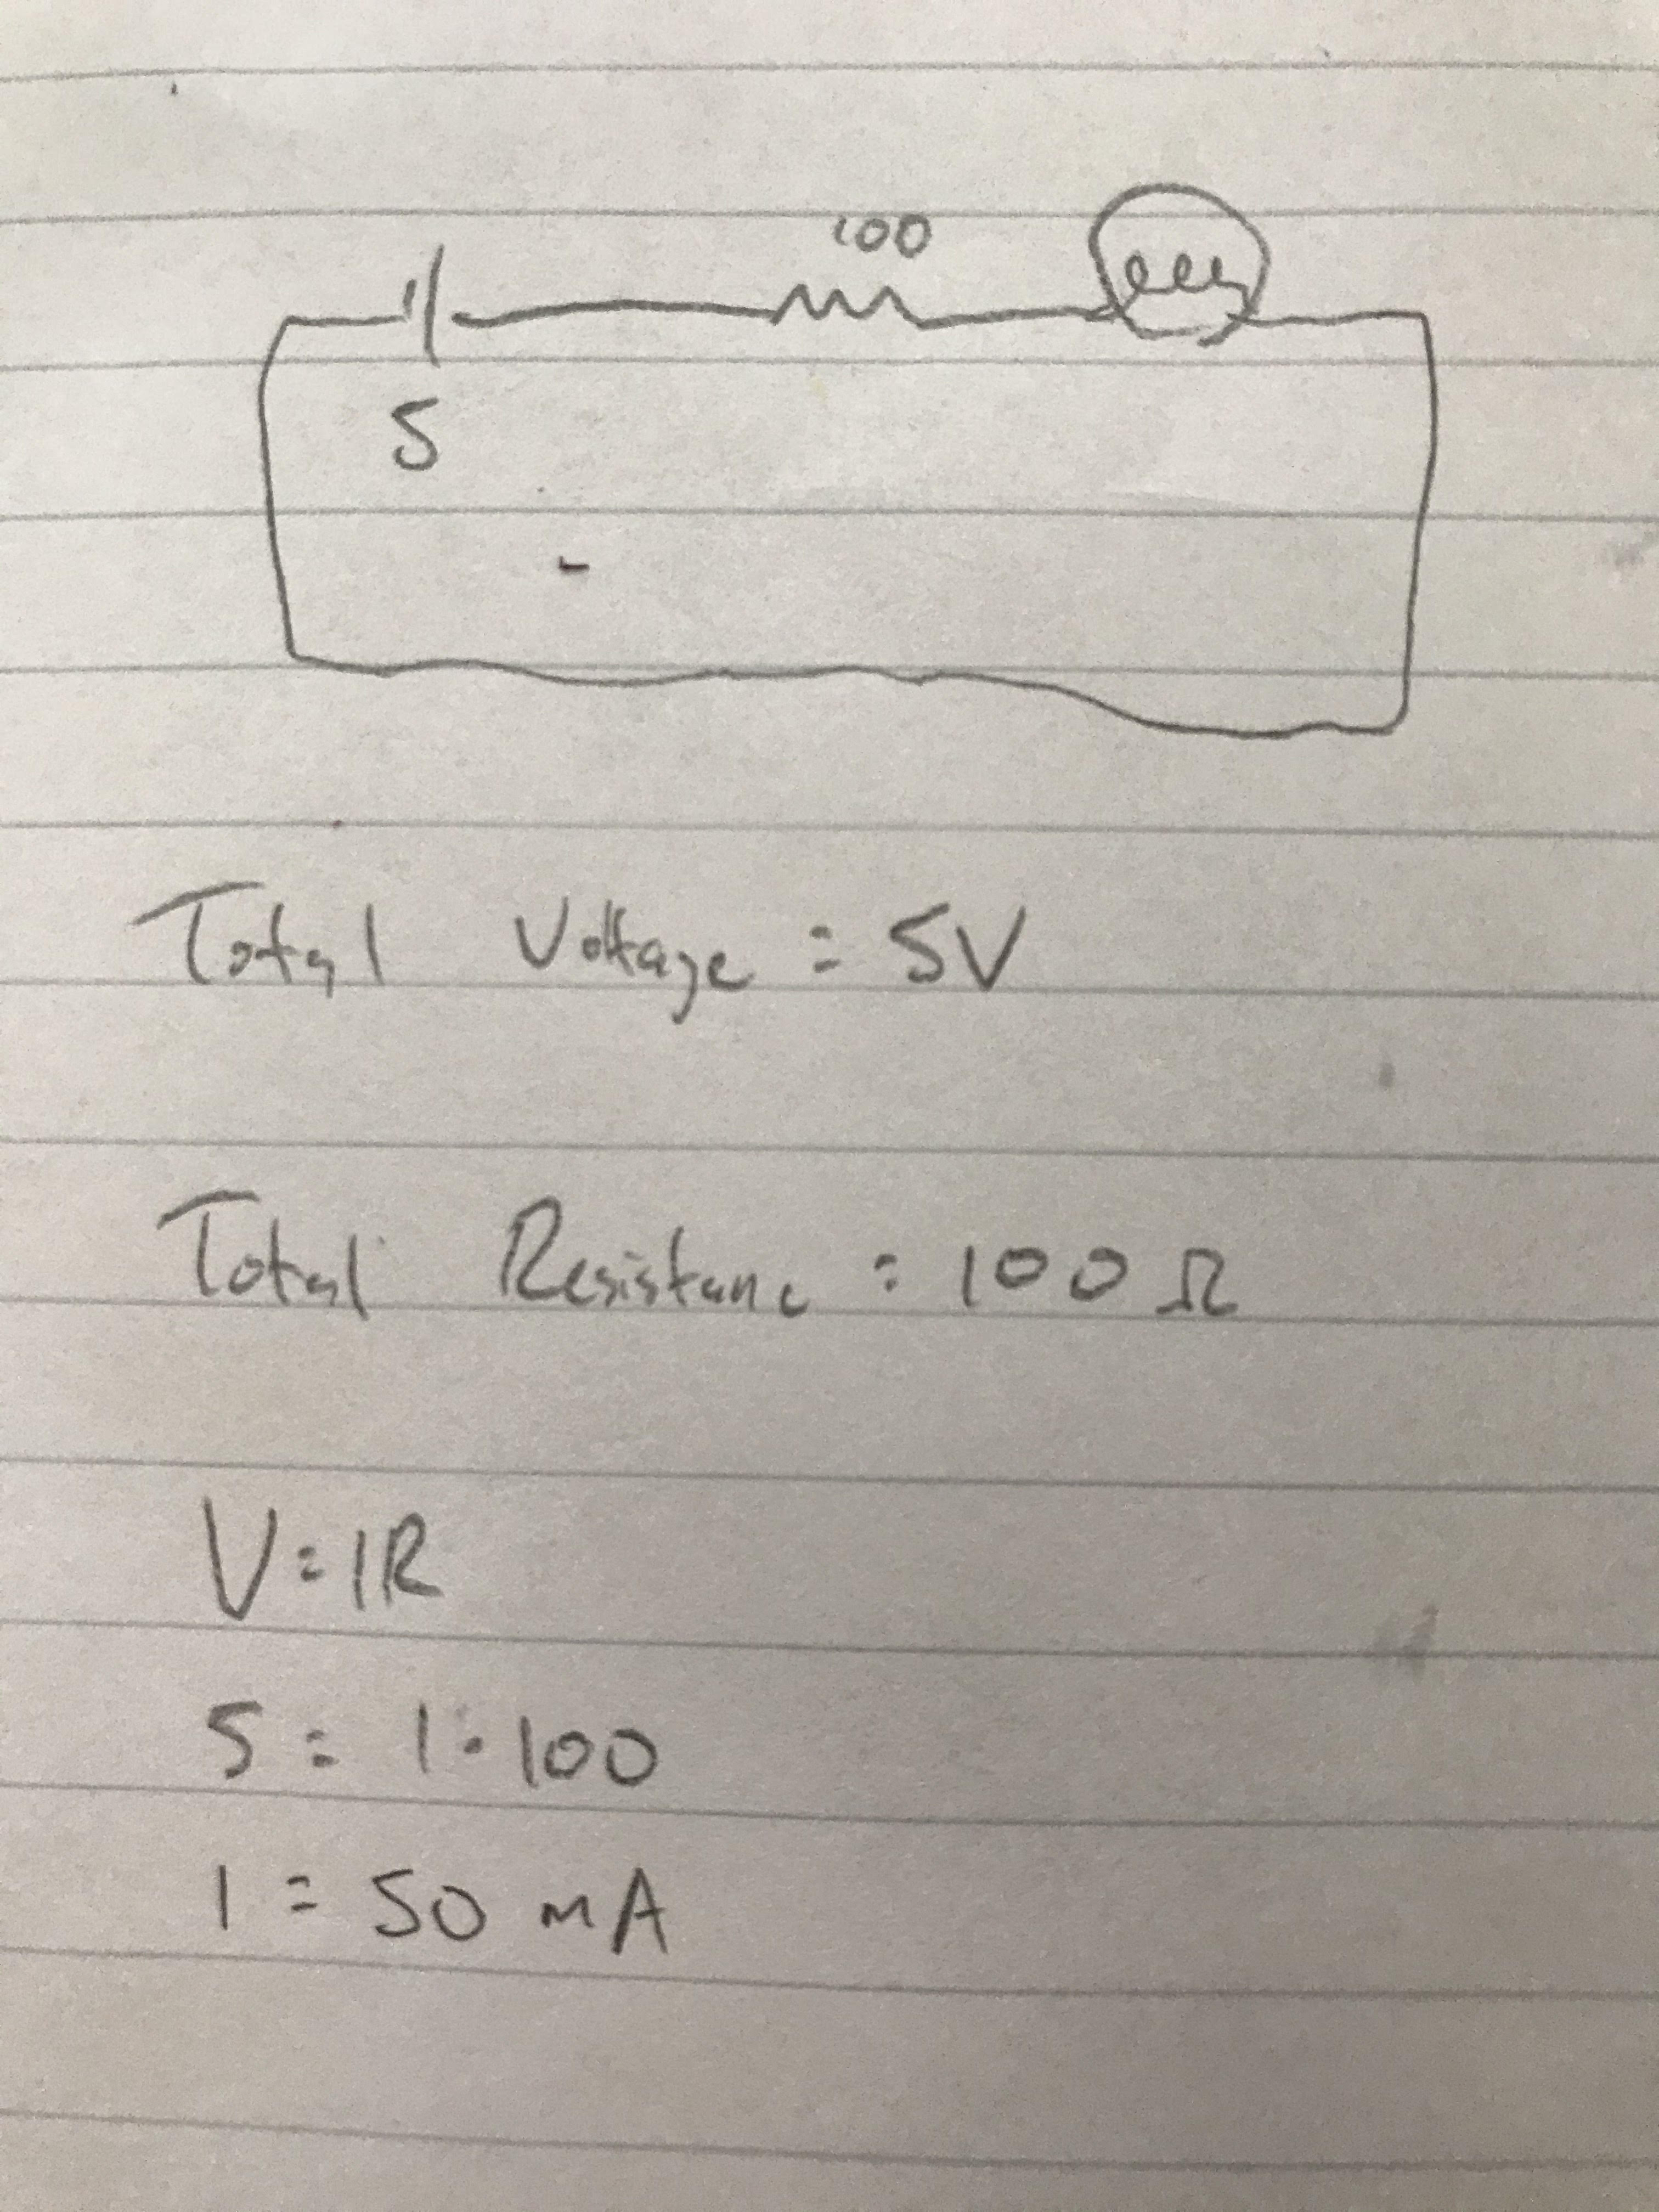 100
5
Total Voltage = 5V
Total Resistance = 100 Ω
V=IR
5 = I·100
I = 50 mA